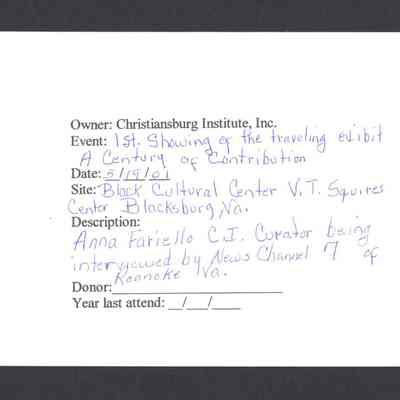 Owner: Christiansburg Institute, Inc.
Event: 1st. Showing of the traveling exibit
A Century of Contribution
Date: 5/19/01
Site: Black Cultural Center V.T. Squires
Center Blacksburg, Va.
Description:
Anna Fariello C.I. Curator being
interviewed by News Channel 7 of
Roanoke Va.
Donor:
Year last attend: __/__/__